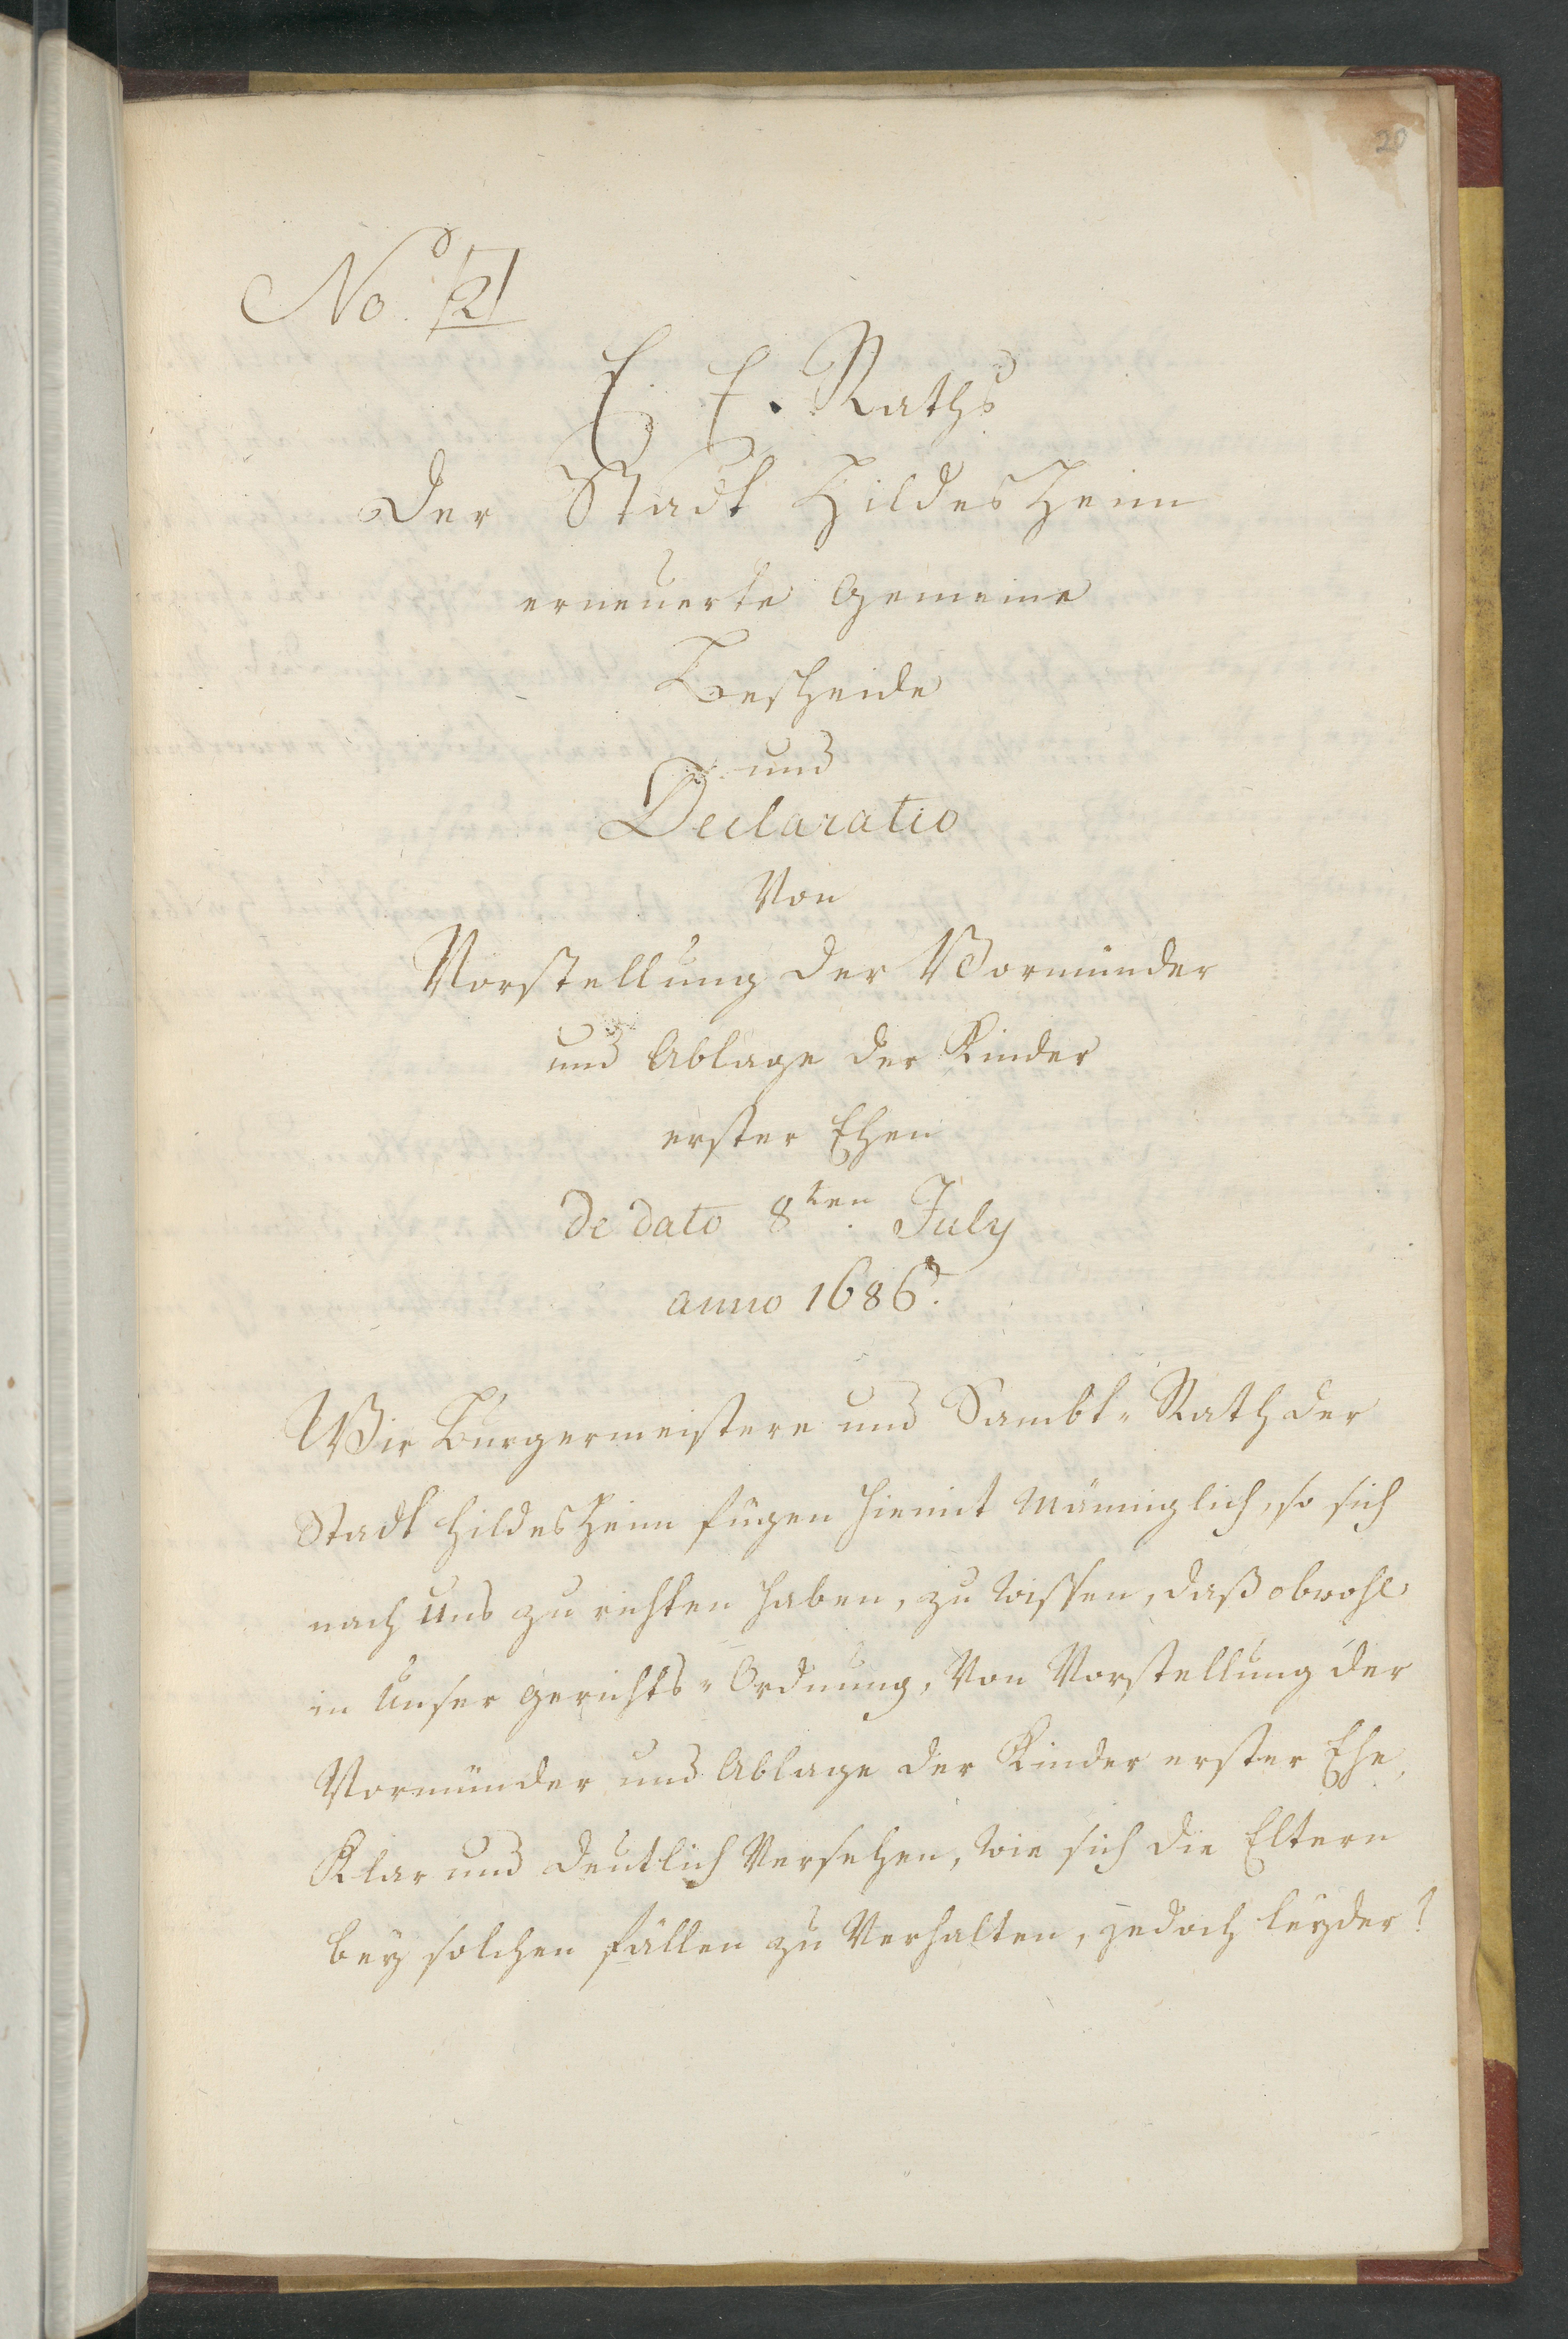 20
No. 2
E. E. Raths
Der Stadt Hildesheim
erneuerte Gemeine
Bescheide
und
Declaratio
Von
Vorstellung der Vormünder
und Ablage der Kinder
erster Ehen
de dato 8ten July
anno 1686.
Wir Bürgermeistere und Sambt-Rath der
Stadt Hildesheim fügen hiemit Männiglich, so sich
nach Uns zu richten haben, zu wissen, daß obwohl
in Unser gerichts-Ordnung, Von Vorstellung der
Vormünder und Ablage der Kinder erster Ehe,
Klar und deutlich Versehen, wie sich die Eltern
bey solchen fällen zu Verhalten, jedoch leyder!